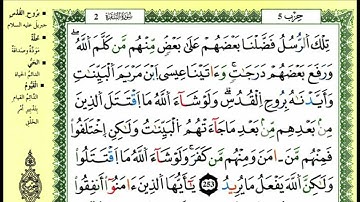 حِزْب 5
سُورَةُ البَقَرَةِ
2
تِلْكَ اَ۬لرُّسُلُ فَضَّلْنَا بَعْضَهُمْ عَلَىٰ بَعْضٍ مِّنْهُم مَّن كَلَّمَ اَ۬للَّهُ
وَرَفَعَ بَعْضَهُمْ دَرَجَٰتٍ وَءَاتَيْنَا عِيسَى اَ۪بْنَ مَرْيَمَ اَ۬لْبَيِّنَٰتِ
وَأَيَّدْنَٰهُ بِرُوحِ اِ۬لْقُدُسِ وَلَوْ شَآءَ اَ۬للَّهُ مَا اَ۪قْتَتَلَ اَ۬لذِينَ
مِنۢ بَعْدِهِم مِّنۢ بَعْدِ مَا جَآءَتْهُمُ اُ۬لْبَيِّنَٰتُ وَلَٰكِنِ اِ۪خْتَلَفُوا
فَمِنْهُم مَّنَ اٰمَنَ وَمِنْهُم مَّن كَفَرَ وَلَوْ شَآءَ اَ۬للَّهُ مَا اَ۪قْتَتَلُوا
وَلَٰكِنَّ اَ۬للَّهَ يَفْعَلُ مَا يُرِيدُ 253 يَٰٓأَيُّهَا اَ۬لذِينَ ءَامَنُوٓا أَنفِقُوا
بِرُوحِ القُدُسِ
جبريل عليه السلام
خُلَّةٌ
مَوَدَّةٌ وَصَدَاقَةٌ
الحَيُّ
الدَّائِمُ الحَيَاةِ
القَيُّومُ
الدَّائِمُ القِيَامِ
بِتَدْبِيرِ أَمْرِ
الخَلْقِ